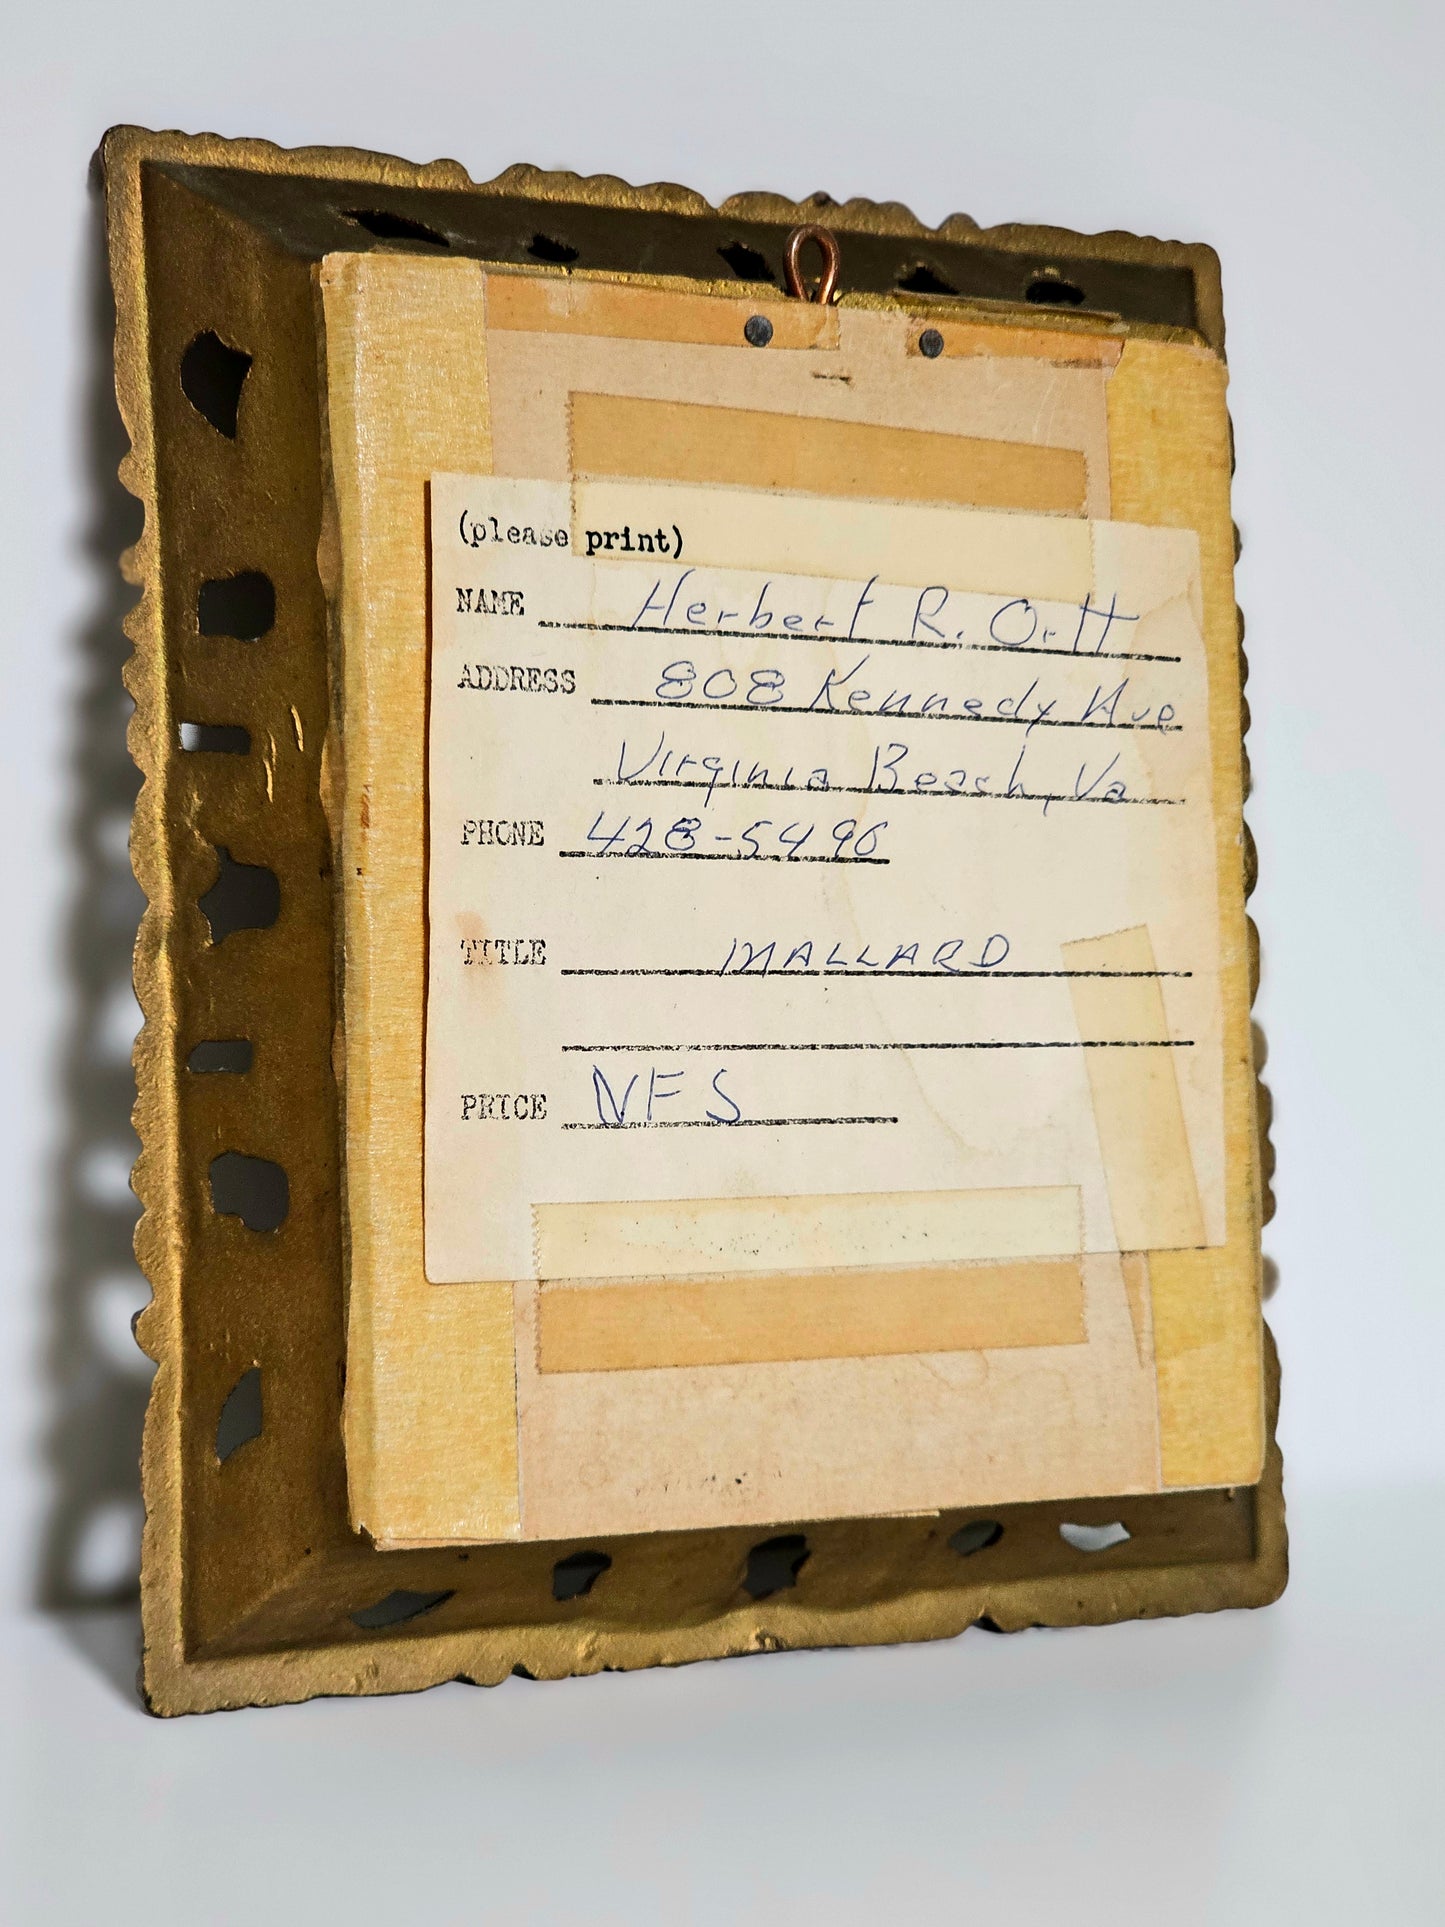 (please print)
NAME Herbert R. Ortt
ADDRESS 808 Kennedy Ave
Virginia Beach, Va
PHONE 428-5490
TITLE MALLARD
PRICE NFS